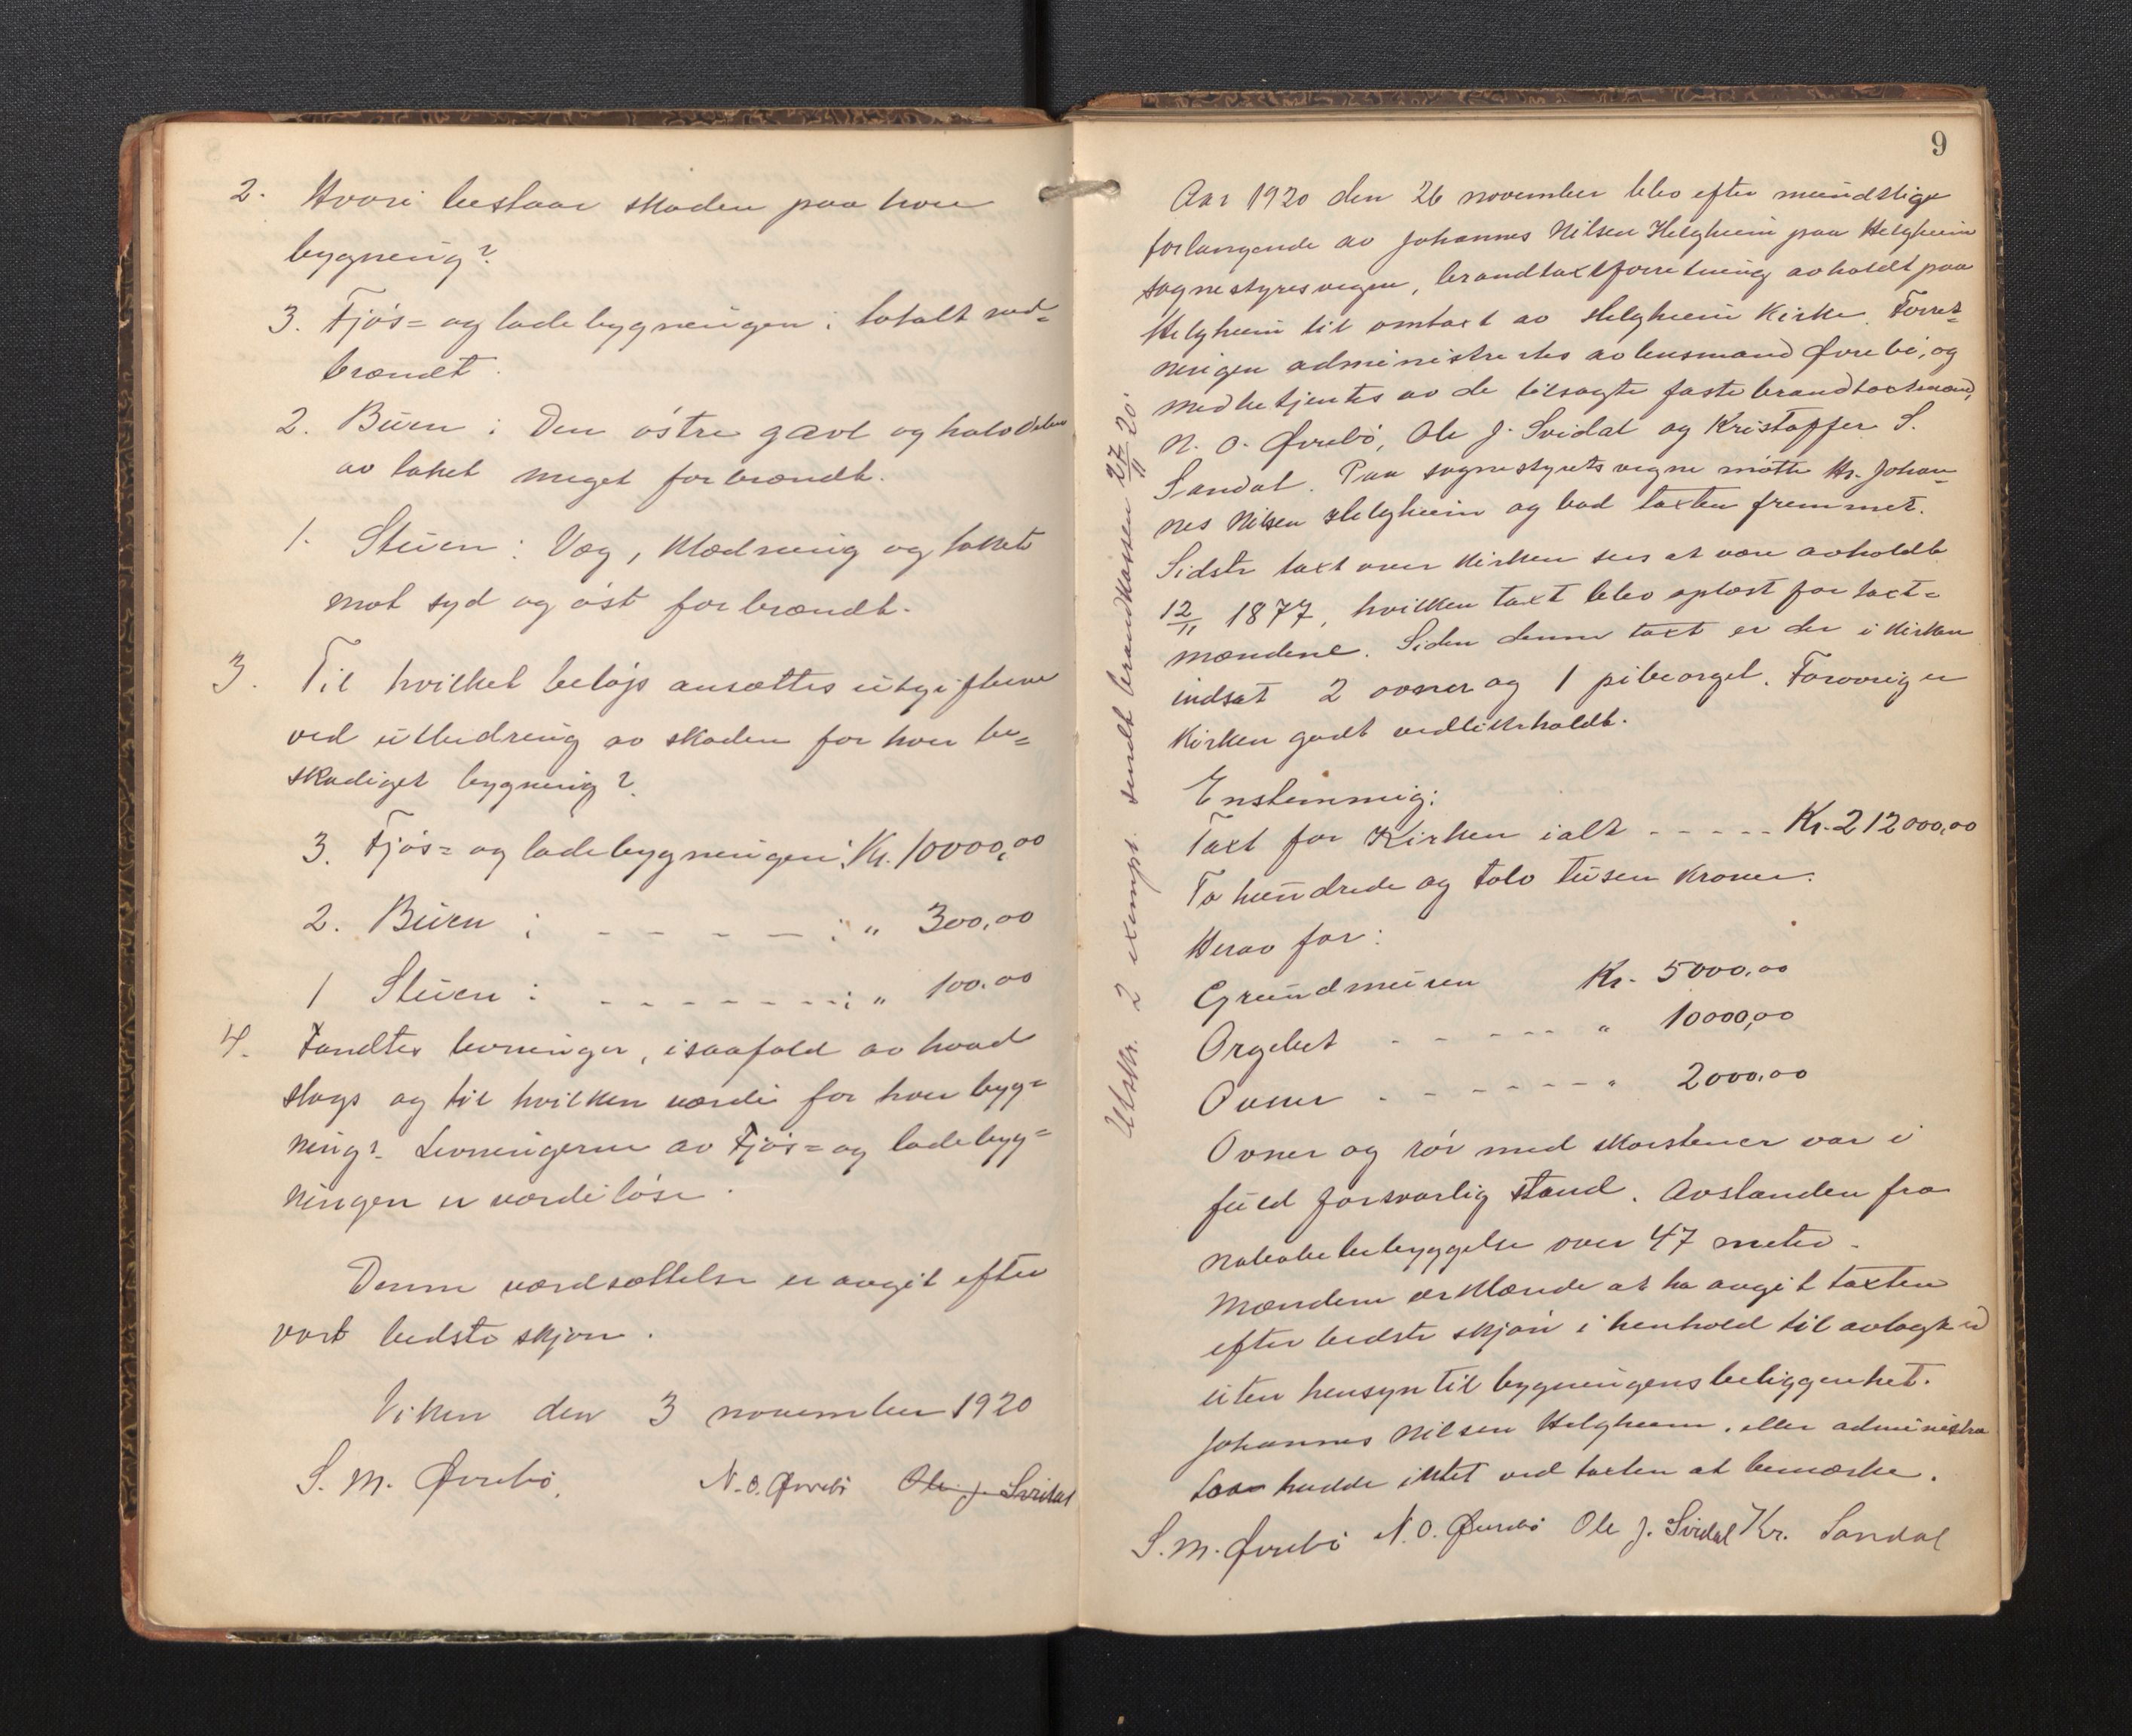 2. Hvori bestaar skaden paa hver
bygning?
3. Fjøs= og ladebygningen: totalt ned=
brændt.
2. Buen: Den østre gavl og halvdelen
av taket meget forbrændt.
1. Stuen: Væg, klædning og taket
mot syd og øst forbrændt.
3. Til hvilket beløp ansættes utgifterne
ved utbedring av skaden for hver be=
skadiget bygning?
3. Fjøs= og ladebygningen: Kr. 10000,00
2. Buen : - - - - : " 300,00
1 Stuen : - - - - - - - : " 100,00
4. Fandtes levninger, isaafald av hvad
slags og til hvilken værdi for hver byg=
ning? Levningerne av Fjøs= og ladebyg=
ningen er værdiløse.
Denne værdsættelse er avgit efter
vort bedste skjøn.
Viken den 3 november 1920
S. M. Øvrebø. N. O. Øvrebø Ole J. Svidal
9
Aar 1920 den 26 november blev efter mundtlige
forlangende av Johannes Nilsen Helgheim paa Helgheim
sognestyresvegne, brandtaxtforretning avholdt paa
Helgheim til omtaxt av Helgheim Kirke. Forret=
ningen administrertes av lensmand Øvrebø, og
medbetjentes av de tilsagte faste brandtaxtmænd,
N. O. Øvrebø, Ole J. Svidal og Kristoffer S.
Sandal. Paa sognestyrets vegne møtte Hr. Johan=
nes Nilsen Helgheim og bad taxten fremmet.
Sidste taxt over kirken sees at være avholdt
12/11 1877, hvilken taxt blev oplæst for taxt=
mændene. Siden denne taxt er der i kirken
indsat 2 ovner og 1 pibeorgel. Forøvrig er
kirken godt vedlikeholdt.
Enstemmig:
Taxt for Kirken ialt - - - - - Kr. 212000,00
To hundrede og tolv tusen kroner.
Herav for:
Grundmuren Kr. 5000,00
Orgelet - - - - - " 10000,00
Ovner - - - - - - " 2000,00
Ovner og rør med skorstener var i
fuld forsvarlig stand. Avstanden fra
nabobebyggelse over 47 meter.
Mændene erklærede at ha avgit taxten
efter bedste skjøn i henhold til avlagt ed
uten hensyn til bygningens beliggenhet.
Johannes Nilsen Helgheim, eller administra
tor hadde intet ved taxten at bemærke.
S. M. Øvrebø N. O. Øvrebø Ole J. Svidal Kr. Sandal
Utskr. 2 exempl. sendt brandkassen 27/11 20.